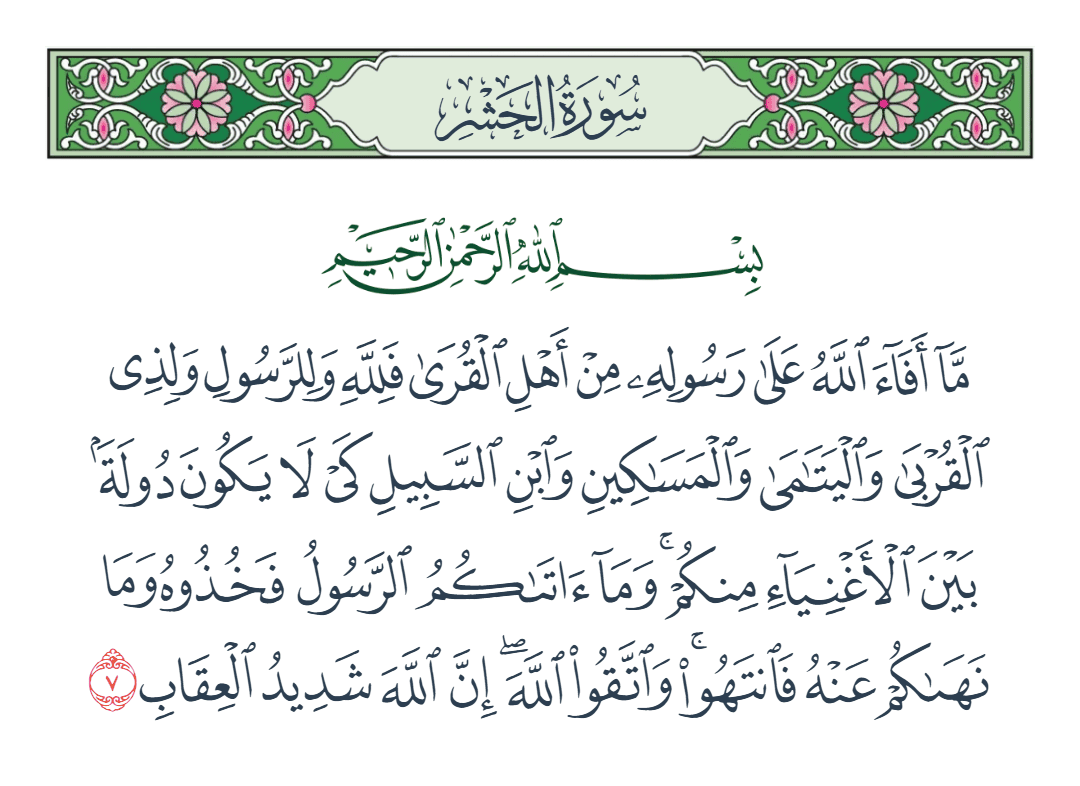 سُورَةُ الحَشْرِ
بِسْمِ ٱللَّهِ ٱلرَّحْمَٰنِ ٱلرَّحِيمِ
مَّآ أَفَآءَ ٱللَّهُ عَلَىٰ رَسُولِهِۦ مِنْ أَهْلِ ٱلْقُرَىٰ فَلِلَّهِ وَلِلرَّسُولِ وَلِذِى
ٱلْقُرْبَىٰ وَٱلْيَتَـٰمَىٰ وَٱلْمَسَـٰكِينِ وَٱبْنِ ٱلسَّبِيلِ كَىْ لَا يَكُونَ دُولَةَۢ
بَيْنَ ٱلْأَغْنِيَآءِ مِنكُمْ ۚ وَمَآ ءَاتَىٰكُمُ ٱلرَّسُولُ فَخُذُوهُ وَمَا
نَهَىٰكُمْ عَنْهُ فَٱنتَهُوا۟ ۚ وَٱتَّقُوا۟ ٱللَّهَ ۖ إِنَّ ٱللَّهَ شَدِيدُ ٱلْعِقَابِ ٧